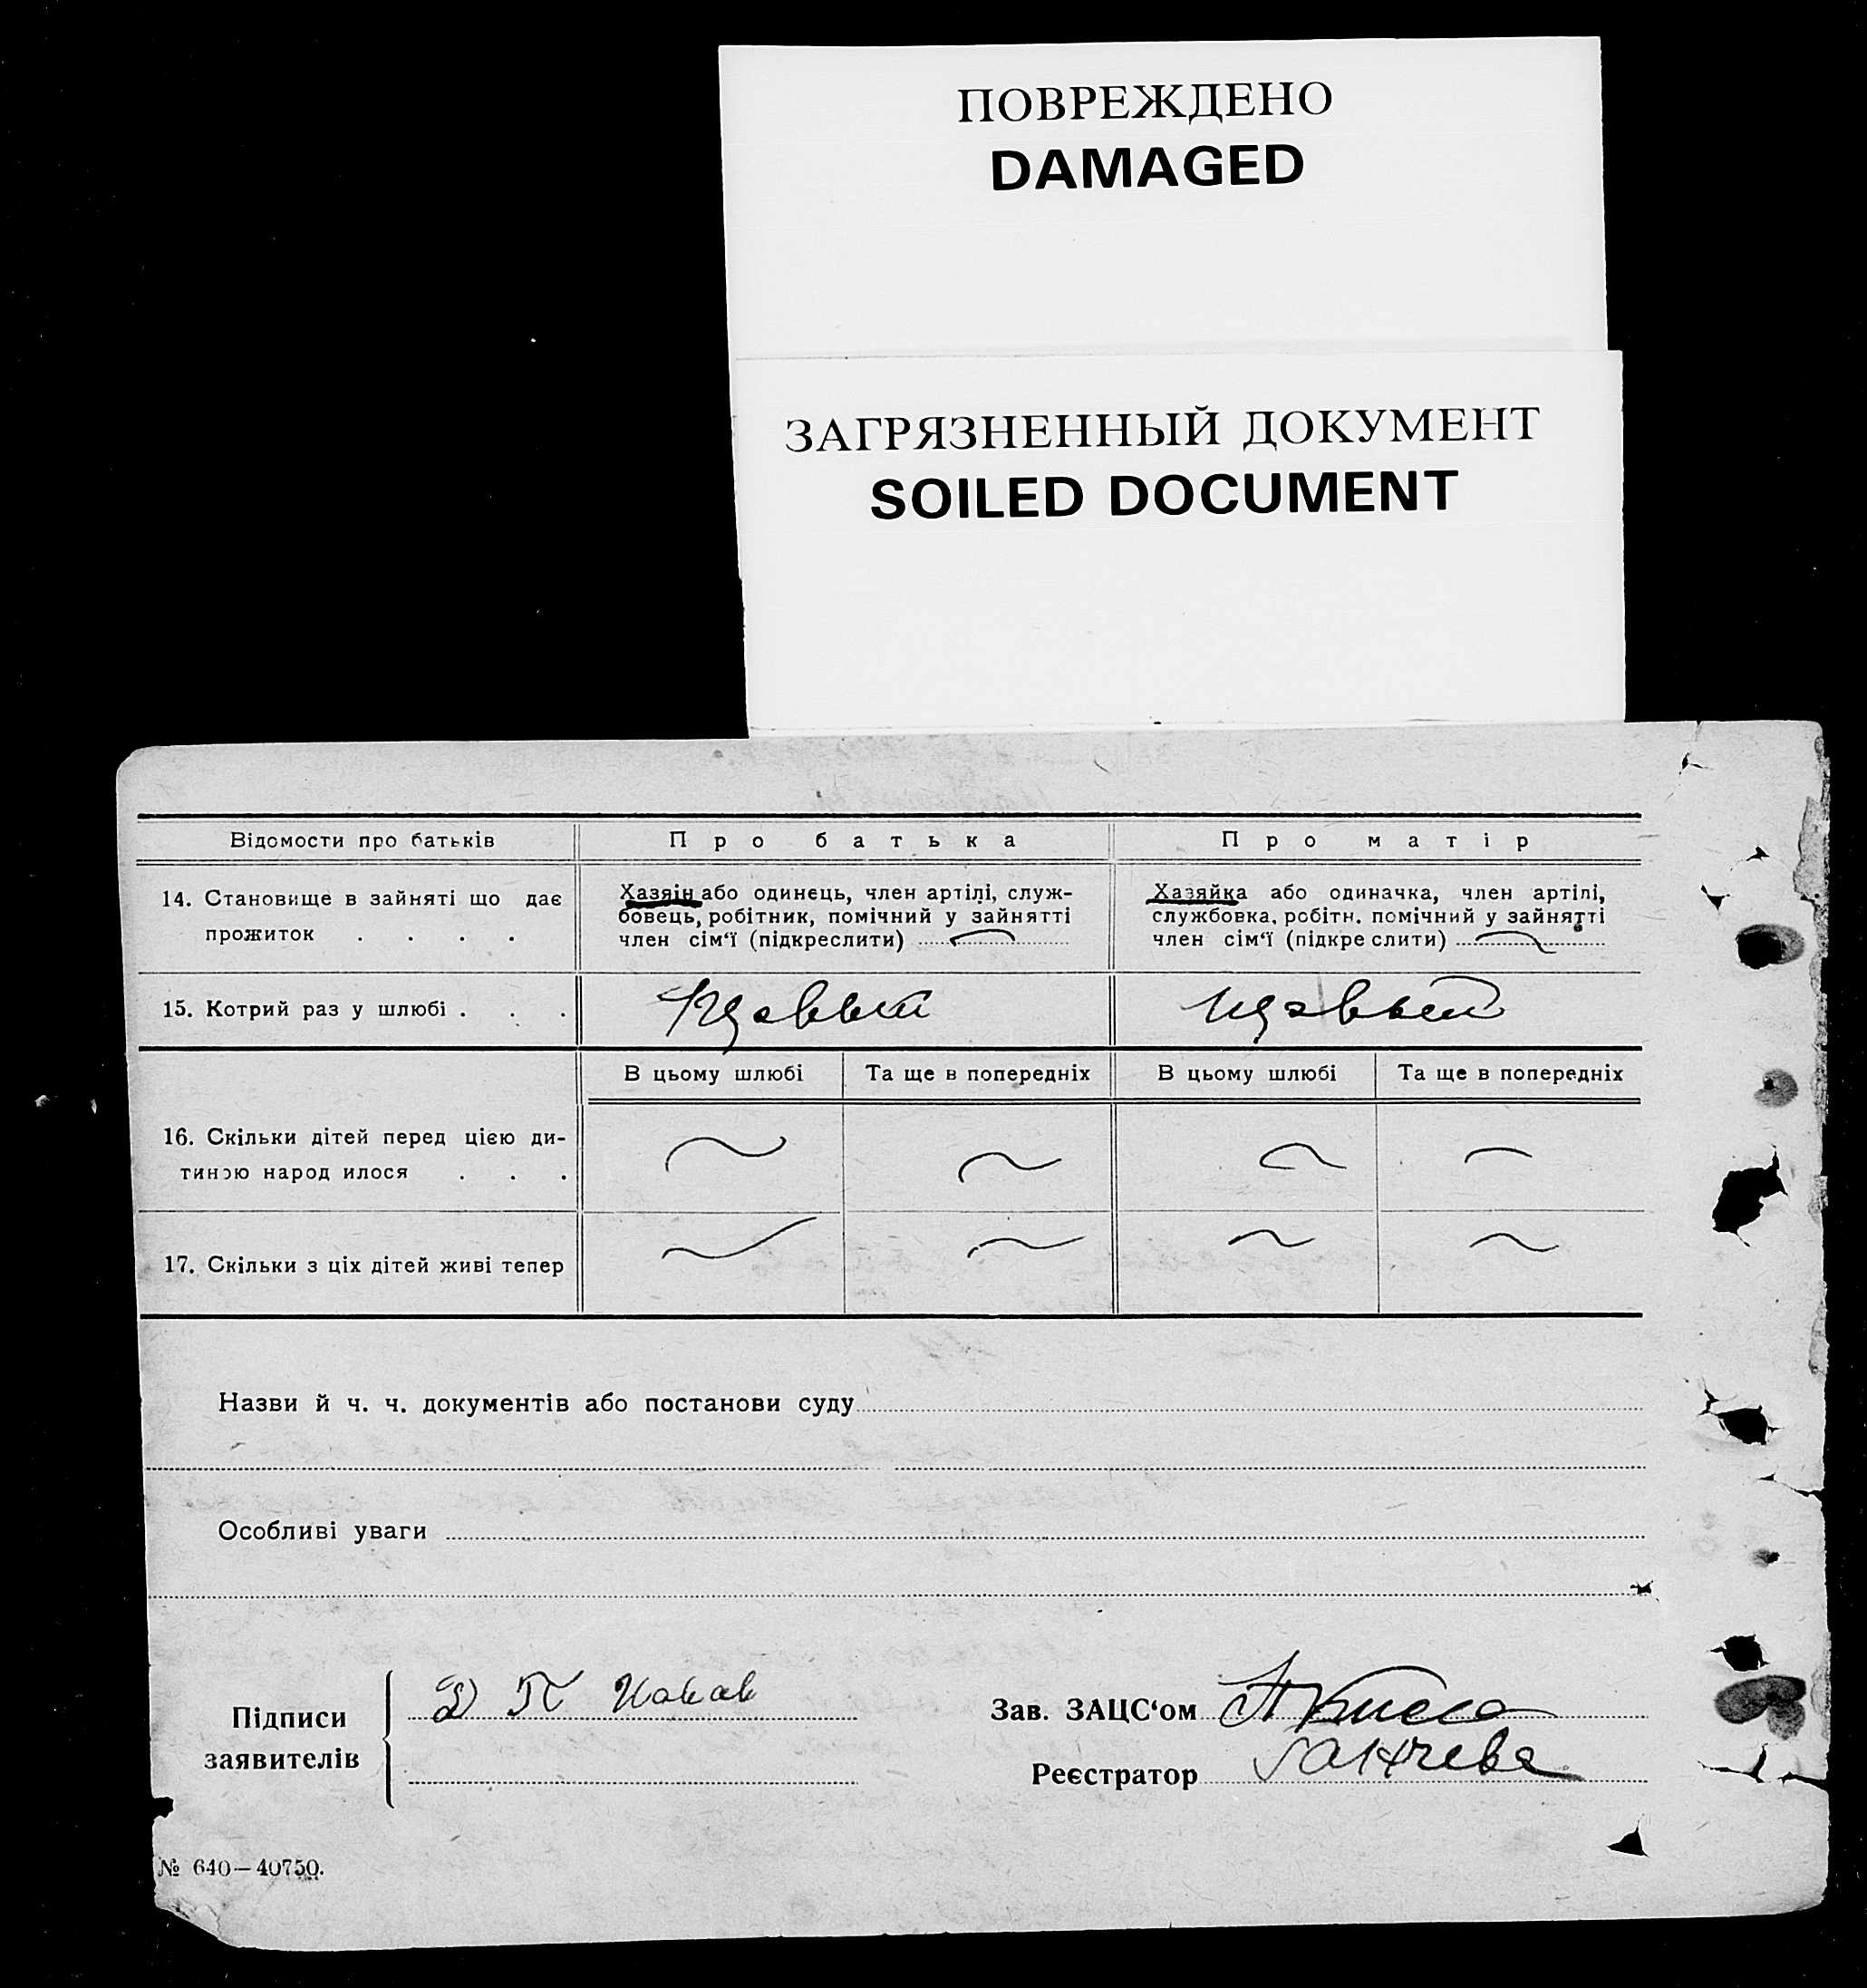 ПОВРЕЖДЕНО
DAMAGED
ЗАГРЯЗНЕННЫЙ ДОКУМЕНТ
SOILED DOCUMENT
Відомости про батьків Про батька Про матір
14. Становище в зайняті що дає
прожиток . . . .
Хазяін або одинець, член артілі, служ-
бовець, робітник, помічний у зайнятті
член сім‘ї (підкреслити)
Хазяйка або одиначка, член артілі,
службовка, робітн. помічний у зайнятті
член сім‘ї (підкреслити)
15. Котрий раз у шлюбі . . .
В цьому шлюбі Та ще в попередніх В цьому шлюбі Та ще в попередніх
16. Скільки дітей перед цією ди-
тиною народилося . . .
17. Скільки з ціх дітей живі тепер
Назви й ч. ч. документів або постанови суду
Особливі уваги
Підписи
заявителів
Зав. ЗАЦС‘ом
Реєстратор
№ 640—40750.